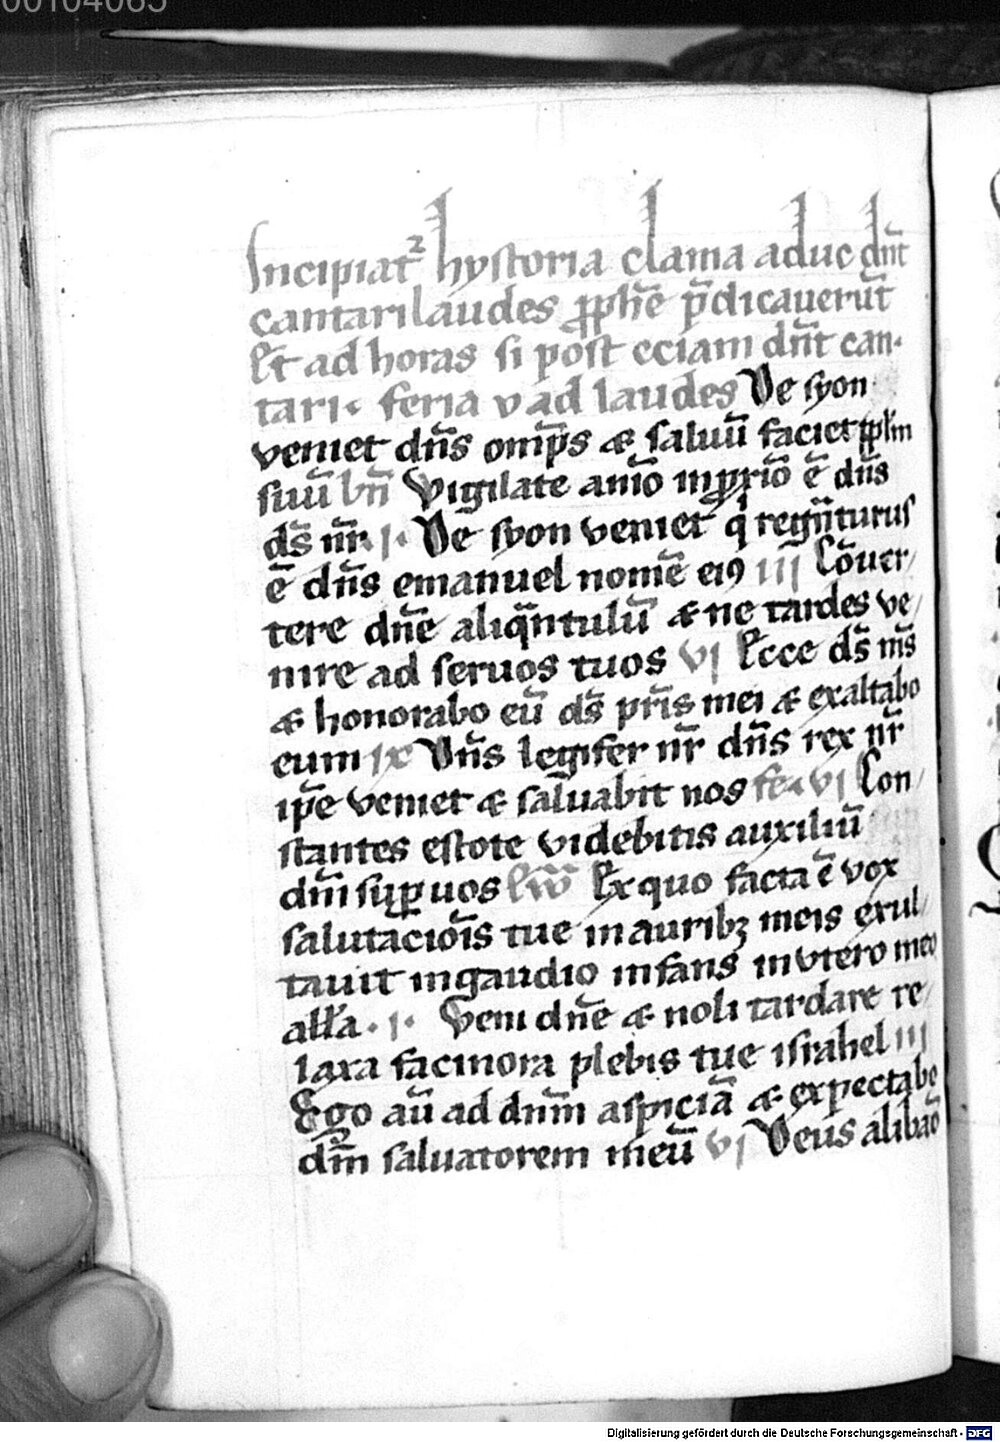 00104065
Incipiat᷑ hystoria clama aduc dn̄t
cantari laudes ꝓph̄e p̄dicauerūt
Et ad horas si post eciam dn̄t can·
tari· feria v ad laudes De syon
veniet dn̄s omp̄s ⁊ saluū faciet pplm̄
suū bn̄ Vigilate aīo in ꝓxīo ē dn̄s
ds̄ nr̄ · I · De syon veniet q̄ regn̄turus
ē dn̄s emanuel nomē eiꝯ III Cōuer/
tere dn̄e aliqn̄tulū ⁊ ne tardes ve/
nire ad seruos tuos VI Ecce ds̄ ms̄
⁊ honorabo eū ds̄ pr̄is mei ⁊ exaltabo
eum IX Dn̄s legifer nr̄ dn̄s rex nr̄
ip̄e veniet ⁊ saluabit nos fe· VI Con/
stantes estote videbitis auxiliū
dn̄i suꝑ uos Ex quo facta ē vox
salutaciōis tue in auribꝫ meis exul/
tauit in gaudio infans in vtero meo
all̄a · I · Veni dn̄e ⁊ noli tardare re/
laxa facinora plebis tue israhel III
Ego aū ad dnm̄ aspiciā ⁊ expectabo
dm̄ saluatorem meū VI Deus a libāo
Digitalisierung gefördert durch die Deutsche Forschungsgemeinschaft - DFG